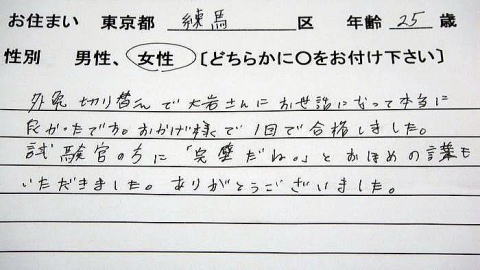 お住まい 東京都 練馬 区 年齢 25 歳
性別 男性、女性 〔どちらかに○をお付け下さい〕
外免切り替えで大岩さんにお世話になって本当に
良かったです。おかげ様で1回で合格しました。
試験官の方に「完璧だね。」とおほめの言葉も
いただきました。ありがとうございました。